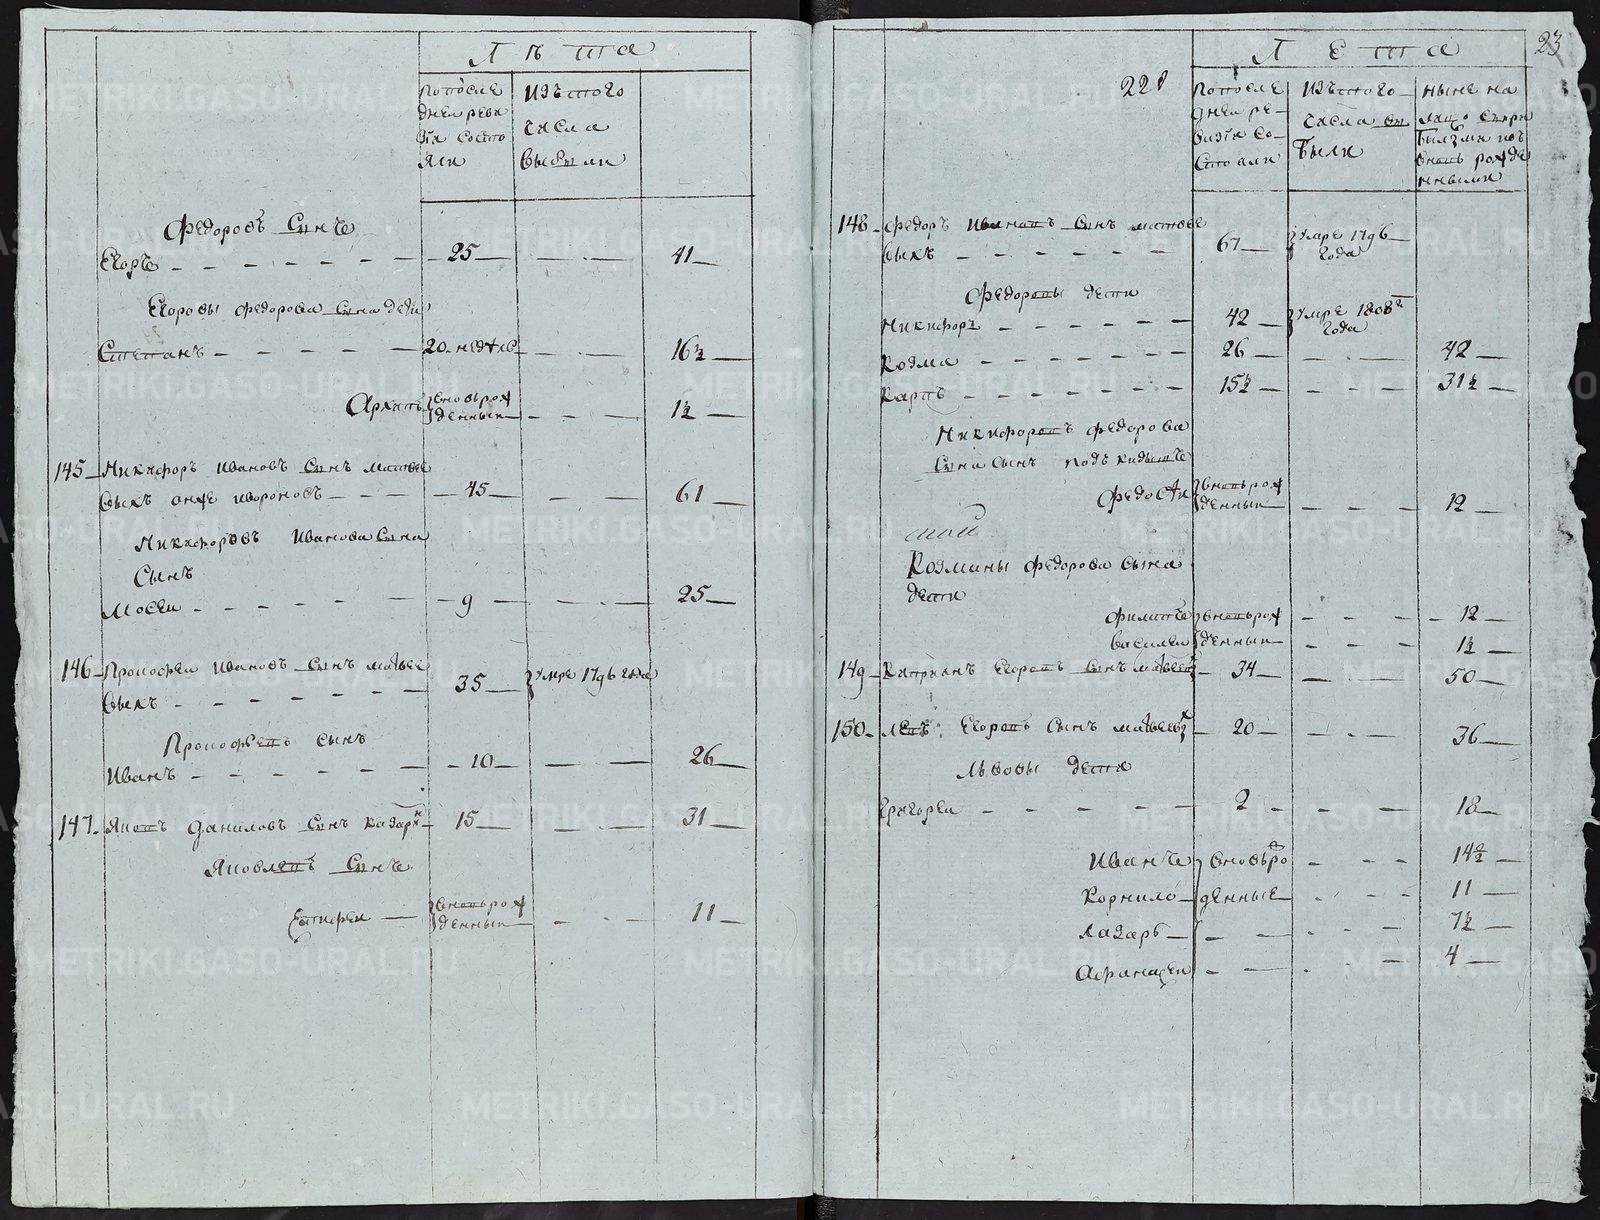 Лѣта
по после
дней реви
зiи состо
яли
изъ того
числа
выбыли
Федоровъ сынъ
Егоръ 25 41
Егоровы Федорова сына дети
Степанъ 20 недѣль 16½
Архипъ вновь рож
денныи 1½
145 Никифоръ Ивановъ сынъ Матвее
выхъ онже 45 61
Никифоровъ Иванова сына
сынъ
Мосеи 9 25
146 Прокофеи Ивановъ сынъ Матвее
выхъ 35 умре 1796 года
Прокофьевъ сынъ
Иванъ 10 26
147 Яковъ Даниловъ сынъ 15 31
Яковлевъ сынъ
Епифеи вновь рож
денныи 11
23
228
Лета
по после
дней ре
визiи со
стояли
изъ того
числа вы
были
ныне на
лицо съ
вновь рожде
нными
148 Федоръ Ивановъ сынъ Матвее
выхъ 67 умре 1796
года
Федоровы дети
Никифоръ 42 умре 1808
года
Козма 26 42
Карпъ 15½ 31½
Никифоровъ Федорова
сына сынъ подъкидышъ
Федосѣи вновь рож
денныи 12
Козмины Федорова сына
дети
Филипъ вновь рож 12
Василеи денныи 1½
149 Каприянъ Егоровъ сынъ Матвеев 34 50
150 Левъ Егоровъ сынъ Матвеевых 20 36
Львовы дети
Григореи 2 18
Иванъ вновь ро 14½
Корнило денные 11
Лазарь 7½
Афанасеи 4
METRIKI.GASO-URAL.RU